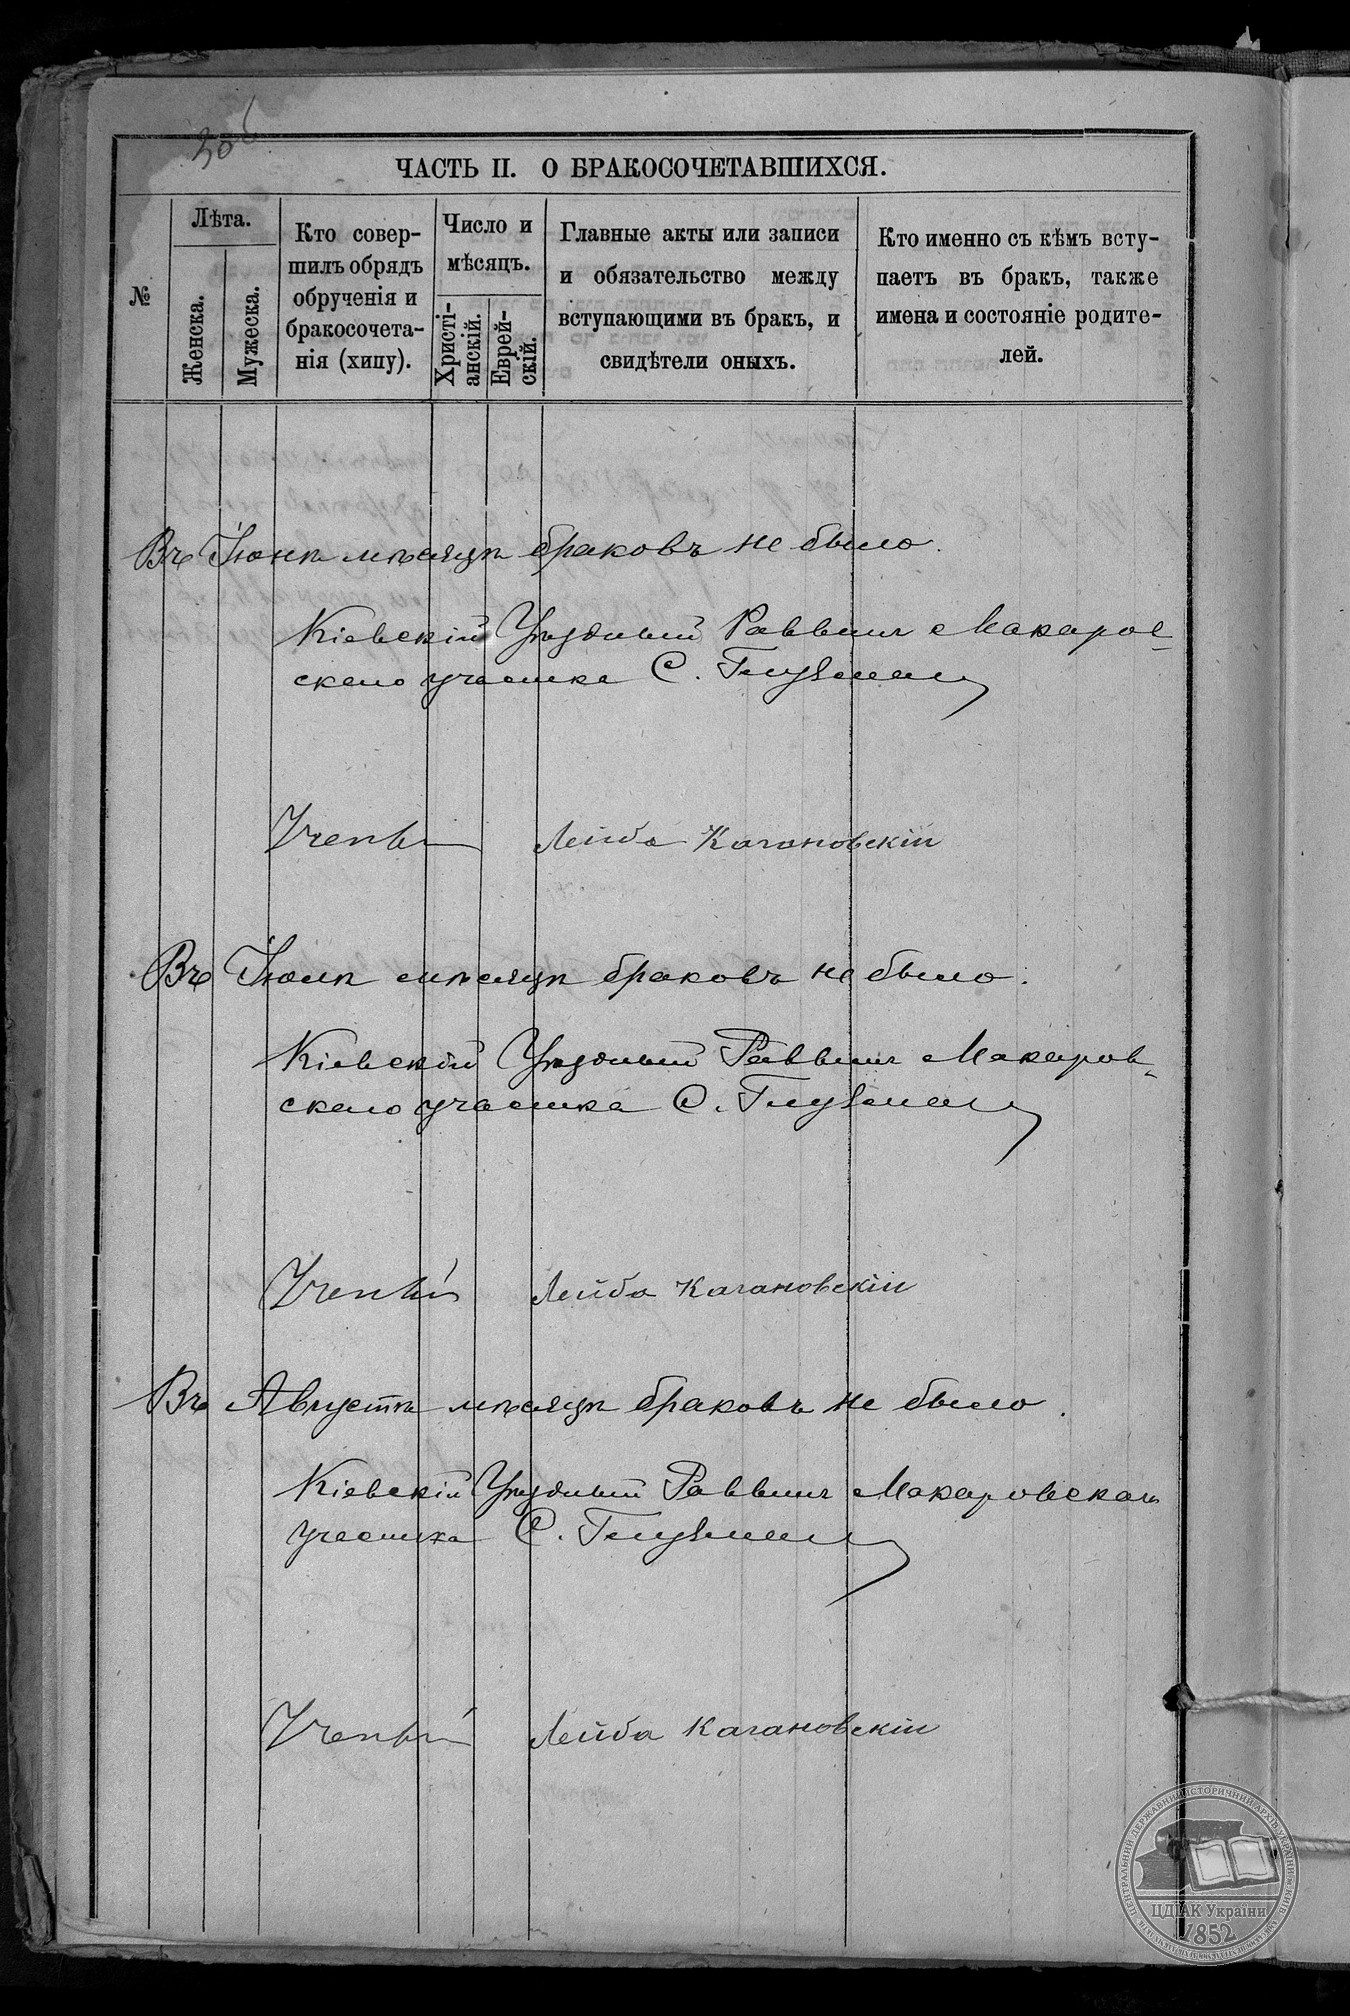 306
ЧАСТЬ II. О БРАКОСОЧЕТАВШИХСЯ.
№
Лѣта.
Женска.
Мужеска.
Кто совер-
шилъ обрядъ
обрученія и
бракосочета-
нія (хипу).
Число и
мѣсяцъ.
Христі-
анскій.
Еврей-
скій.
Главные акты или записи
и обязательство между
вступающими въ бракъ, и
свидѣтели оныхъ.
Кто именно съ кѣмъ всту-
паетъ въ бракъ, также
имена и состояніе родите-
лей.
Въ Іюнѣ мѣсяцѣ браковъ не было.
Кіевскій Уѣздный Раввинъ Макаров-
скаго участка С. Глузман
Ученый Лейба Кагановскій
Въ Іюлѣ мѣсяцѣ браковъ не было.
Кіевскій Уѣздный Раввинъ Макаров-
скаго участка С. Глузман
Ученый Лейба Кагановскій
Въ Августѣ мѣсяцѣ браковъ не было.
Кіевскій Уѣздный Раввинъ Макаровскаго
участка С. Глузман
Ученый Лейба Кагановскій
ЦЕНТРАЛЬНИЙ ДЕРЖАВНИЙ ІСТОРИЧНИЙ АРХІВ УКРАЇНИ, М. КИЇВ
ЦДІАК України
1852